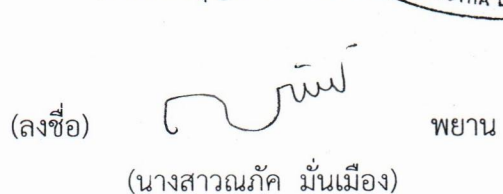 (ลงชื่อ) พยาน
(นางสาวณภัค มั่นเมือง)